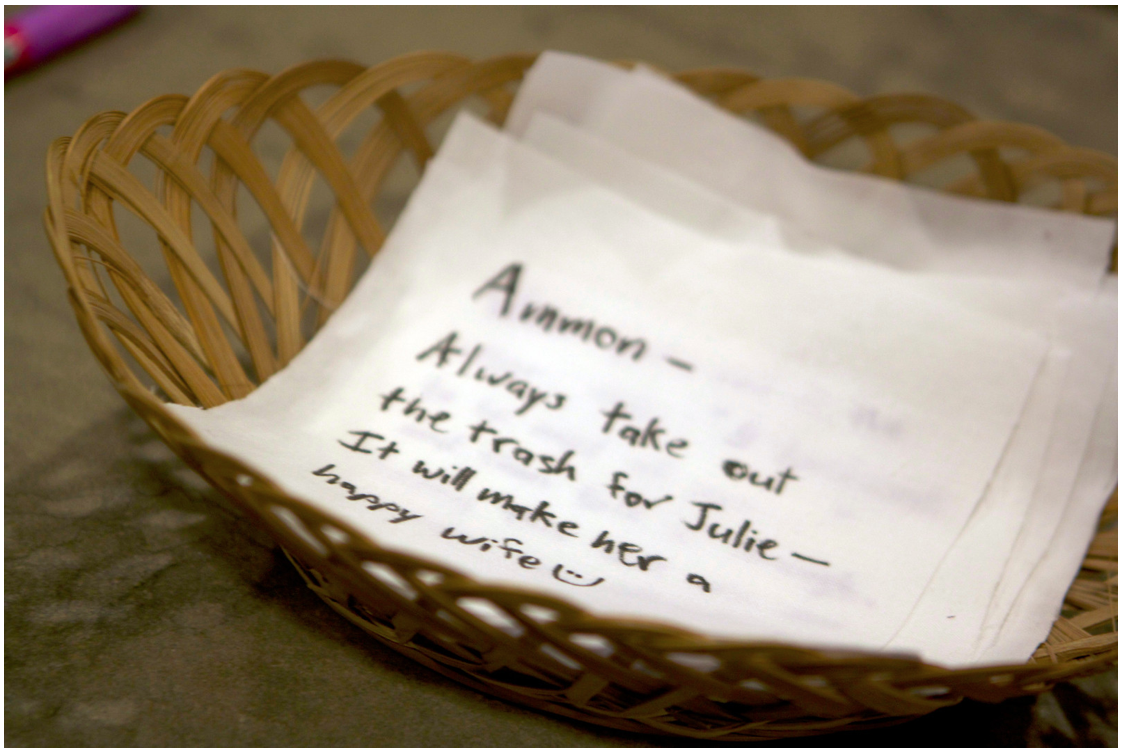 Ammon -
Always take out
the trash for Julie -
It will make her a
happy wife